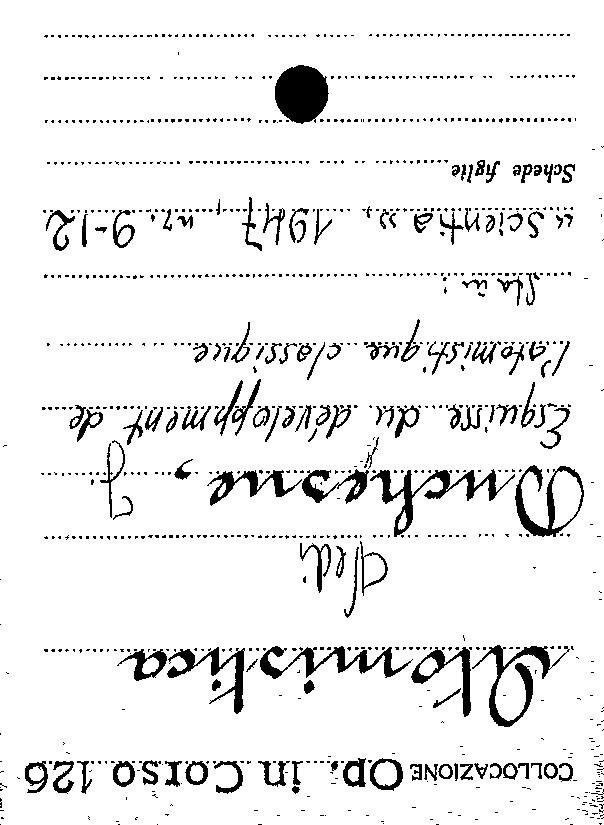 COLLOCAZIONE Op. in Corso 126
Atomistica
Vedi
Duchesne, J.
Esquisse du développment de
l'atomistique classique
Sta in:
"Scientia", 1947, nr. 9-12
Schede figlie